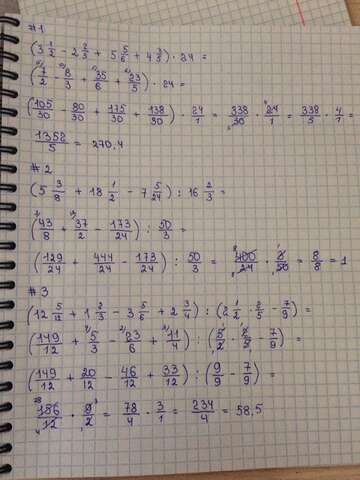 #1
(3 1/2 - 2 2/3 + 5 5/6 + 4 3/5) · 24 =
(7/2 - 8/3 + 35/6 + 23/5) · 24 =
(105/30 - 80/30 + 175/30 + 138/30) · 24/1 = 338/30 · 24/1 = 338/5 · 4/1 =
1352/5 = 270,4
#2
(5 3/8 + 18 1/2 - 7 5/24) : 16 2/3 =
(43/8 + 37/2 - 173/24) : 50/3 =
(129/24 + 444/24 - 173/24) : 50/3 = 400/24 · 3/50 = 8/8 = 1
#3
(12 5/12 + 1 2/3 - 3 5/6 + 2 3/4) : (2 1/2 · 2/5 - 7/9) =
(149/12 + 5/3 - 23/6 + 11/4) : (5/2 · 2/5 - 7/9) =
(149/12 + 20/12 - 46/12 + 33/12) : (9/9 - 7/9) =
156/12 · 9/2 = 78/4 · 3/1 = 234/4 = 58,5